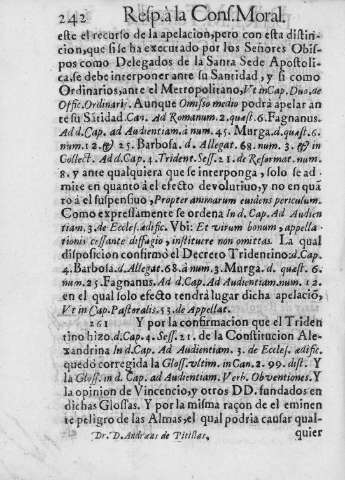 242 Resp. à la Cons. Moral.
este el recurso de la apelacion, pero con esta distin-
cion, que si se ha executado por los Señores Obis-
pos como Delegados de la Santa Sede Apostoli-
ca, se debe interponer ante su Santidad, y si como
Ordinarios, ante el Metropolitano, Vt in Cap. Duo. de
Offic. Ordinarij. Aunque Omisso medio podrà apelar an
te su Sãtidad Can. Ad Romanum. 2. quæst. 6. Fagnanus.
Ad d. Cap. ad Audientiam à num. 45. Murga. d. quæst. 6.
num. 12. & 25. Barbosa. d. Allegat. 68. num. 3. & in
Collect. Ad d. Cap. 4. Trident. Sess. 21. de Reformat. num.
8. y ante qualquiera que se interponga, solo se ad-
mite en quanto à el efecto devolutiuo, y no en quã
to à el suspensiuo, Propter animarum euidens periculum.
Como expressamente se ordena In d. Cap. Ad Audien
tiam. 3. de Eccles. ædific. Vbi: Et virum bonum, appella-
tionis cessante diffugio, instituere non omittas. La qual
disposicion confirmò el Decreto Tridentino: d. Cap.
4. Barbosa. d. Allegat. 68. à num. 3. Murga. d. quæst. 6.
num. 25. Fagnanus. Ad d. Cap. ad Audientiam. num. 12.
en el qual solo efecto tendrà lugar dicha apelaciõ,
Vt in Cap. Pastoralis. 53. de Appellat.
261 Y por la confirmacion que el Triden
tino hizo. d. Cap. 4. Sess. 21. de la Constitucion Ale-
xandrina In d. Cap. ad Audientiam. 3. de Eccles. ædific.
quedò corregida la Gloss. vltim. in Can. 2. 99. dist. Y
la Gloss. in d. Cap. ad Audientiam. Verb. Obventiones. Y
la opinion de Vincencio, y otros DD. fundados en
dichas Glossas. Y por la misma raçon de el eminen
te peligro de las Almas, el qual podria causar qual-
Dr. D. Andreas de Pitillas. quier